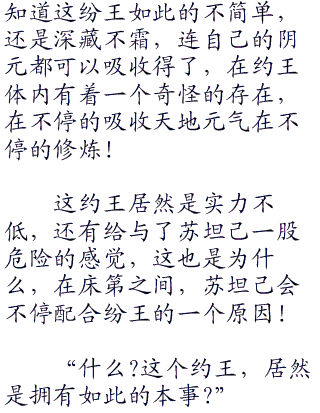 知道这纷王如此的不简单，
还是深藏不霜，连自己的阴
元都可以吸收得了，在约王
体内有着一个奇怪的存在，
在不停的吸收天地元气在不
停的修炼！
这约王居然是实力不
低，还有给与了苏坦己一股
危险的感觉，这也是为什
么，在床第之间，苏坦己会
不停配合纷王的一个原因！
“什么?这个约王，居然
是拥有如此的本事?”